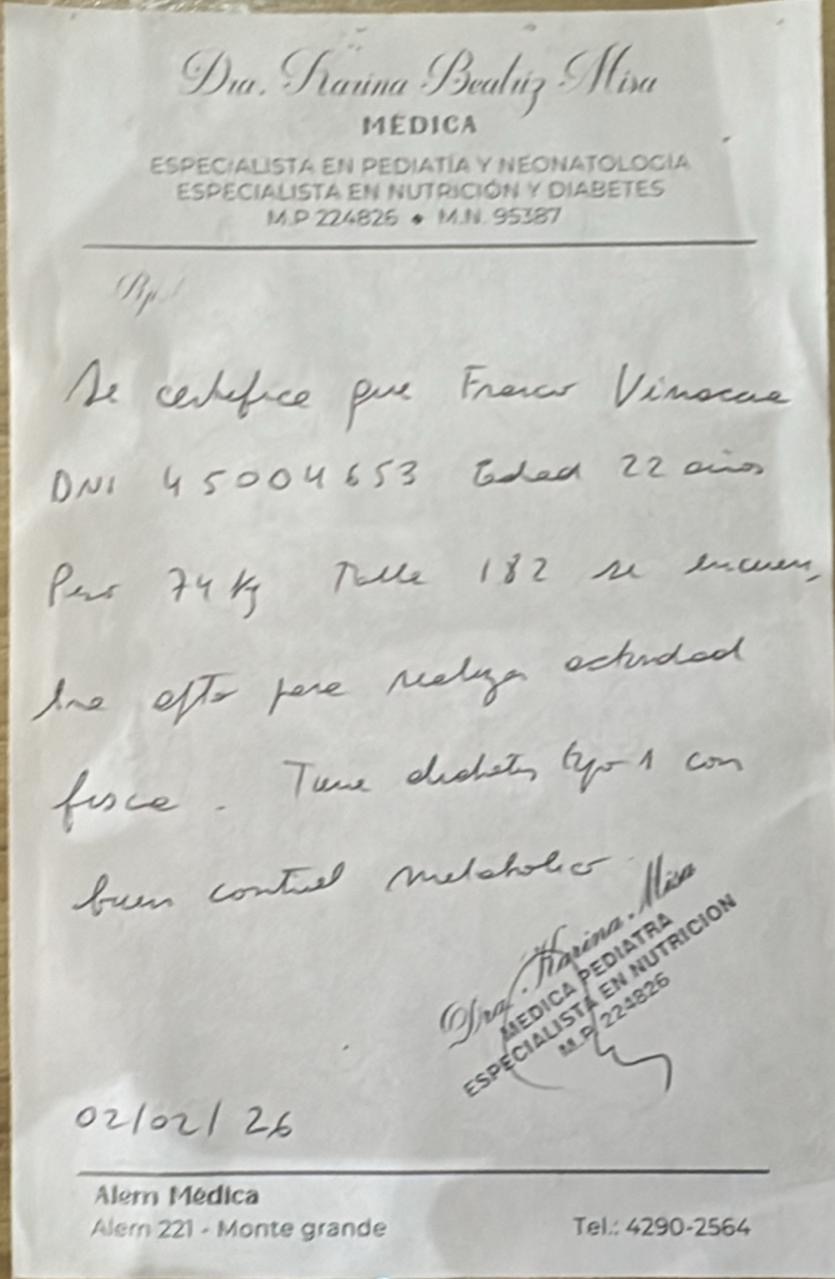 Dra. Karina Beatriz Misa
MÉDICA
ESPECIALISTA EN PEDIATÍA Y NEONATOLOGÍA
ESPECIALISTA EN NUTRICIÓN Y DIABETES
M.P 224826 • M.N. 95387
Rp/
Se certifica que Franco Vinocur
DNI 45004653 Edad 22 años
Peso 74 kg Talla 182 se encuen,
tra apto para realizar actividad
fisica. Tiene diabetes tipo 1 con
buen control metabolico
Dra. Karina Misa
MEDICA PEDIATRA
ESPECIALISTA EN NUTRICION
M.P. 224826
02/02/26
Alem Médica
Alem 221 - Monte grande
Tel.: 4290-2564